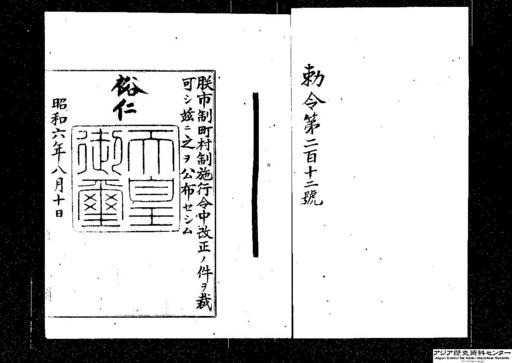 勅令第二百十二號
朕市制町村制施行令中改正ノ件ヲ裁
可シ玆ニ之ヲ公布セシム
裕仁
天皇
御璽
昭和六年八月十日
アジア歴史資料センター
Japan Center for Asian Historical Records